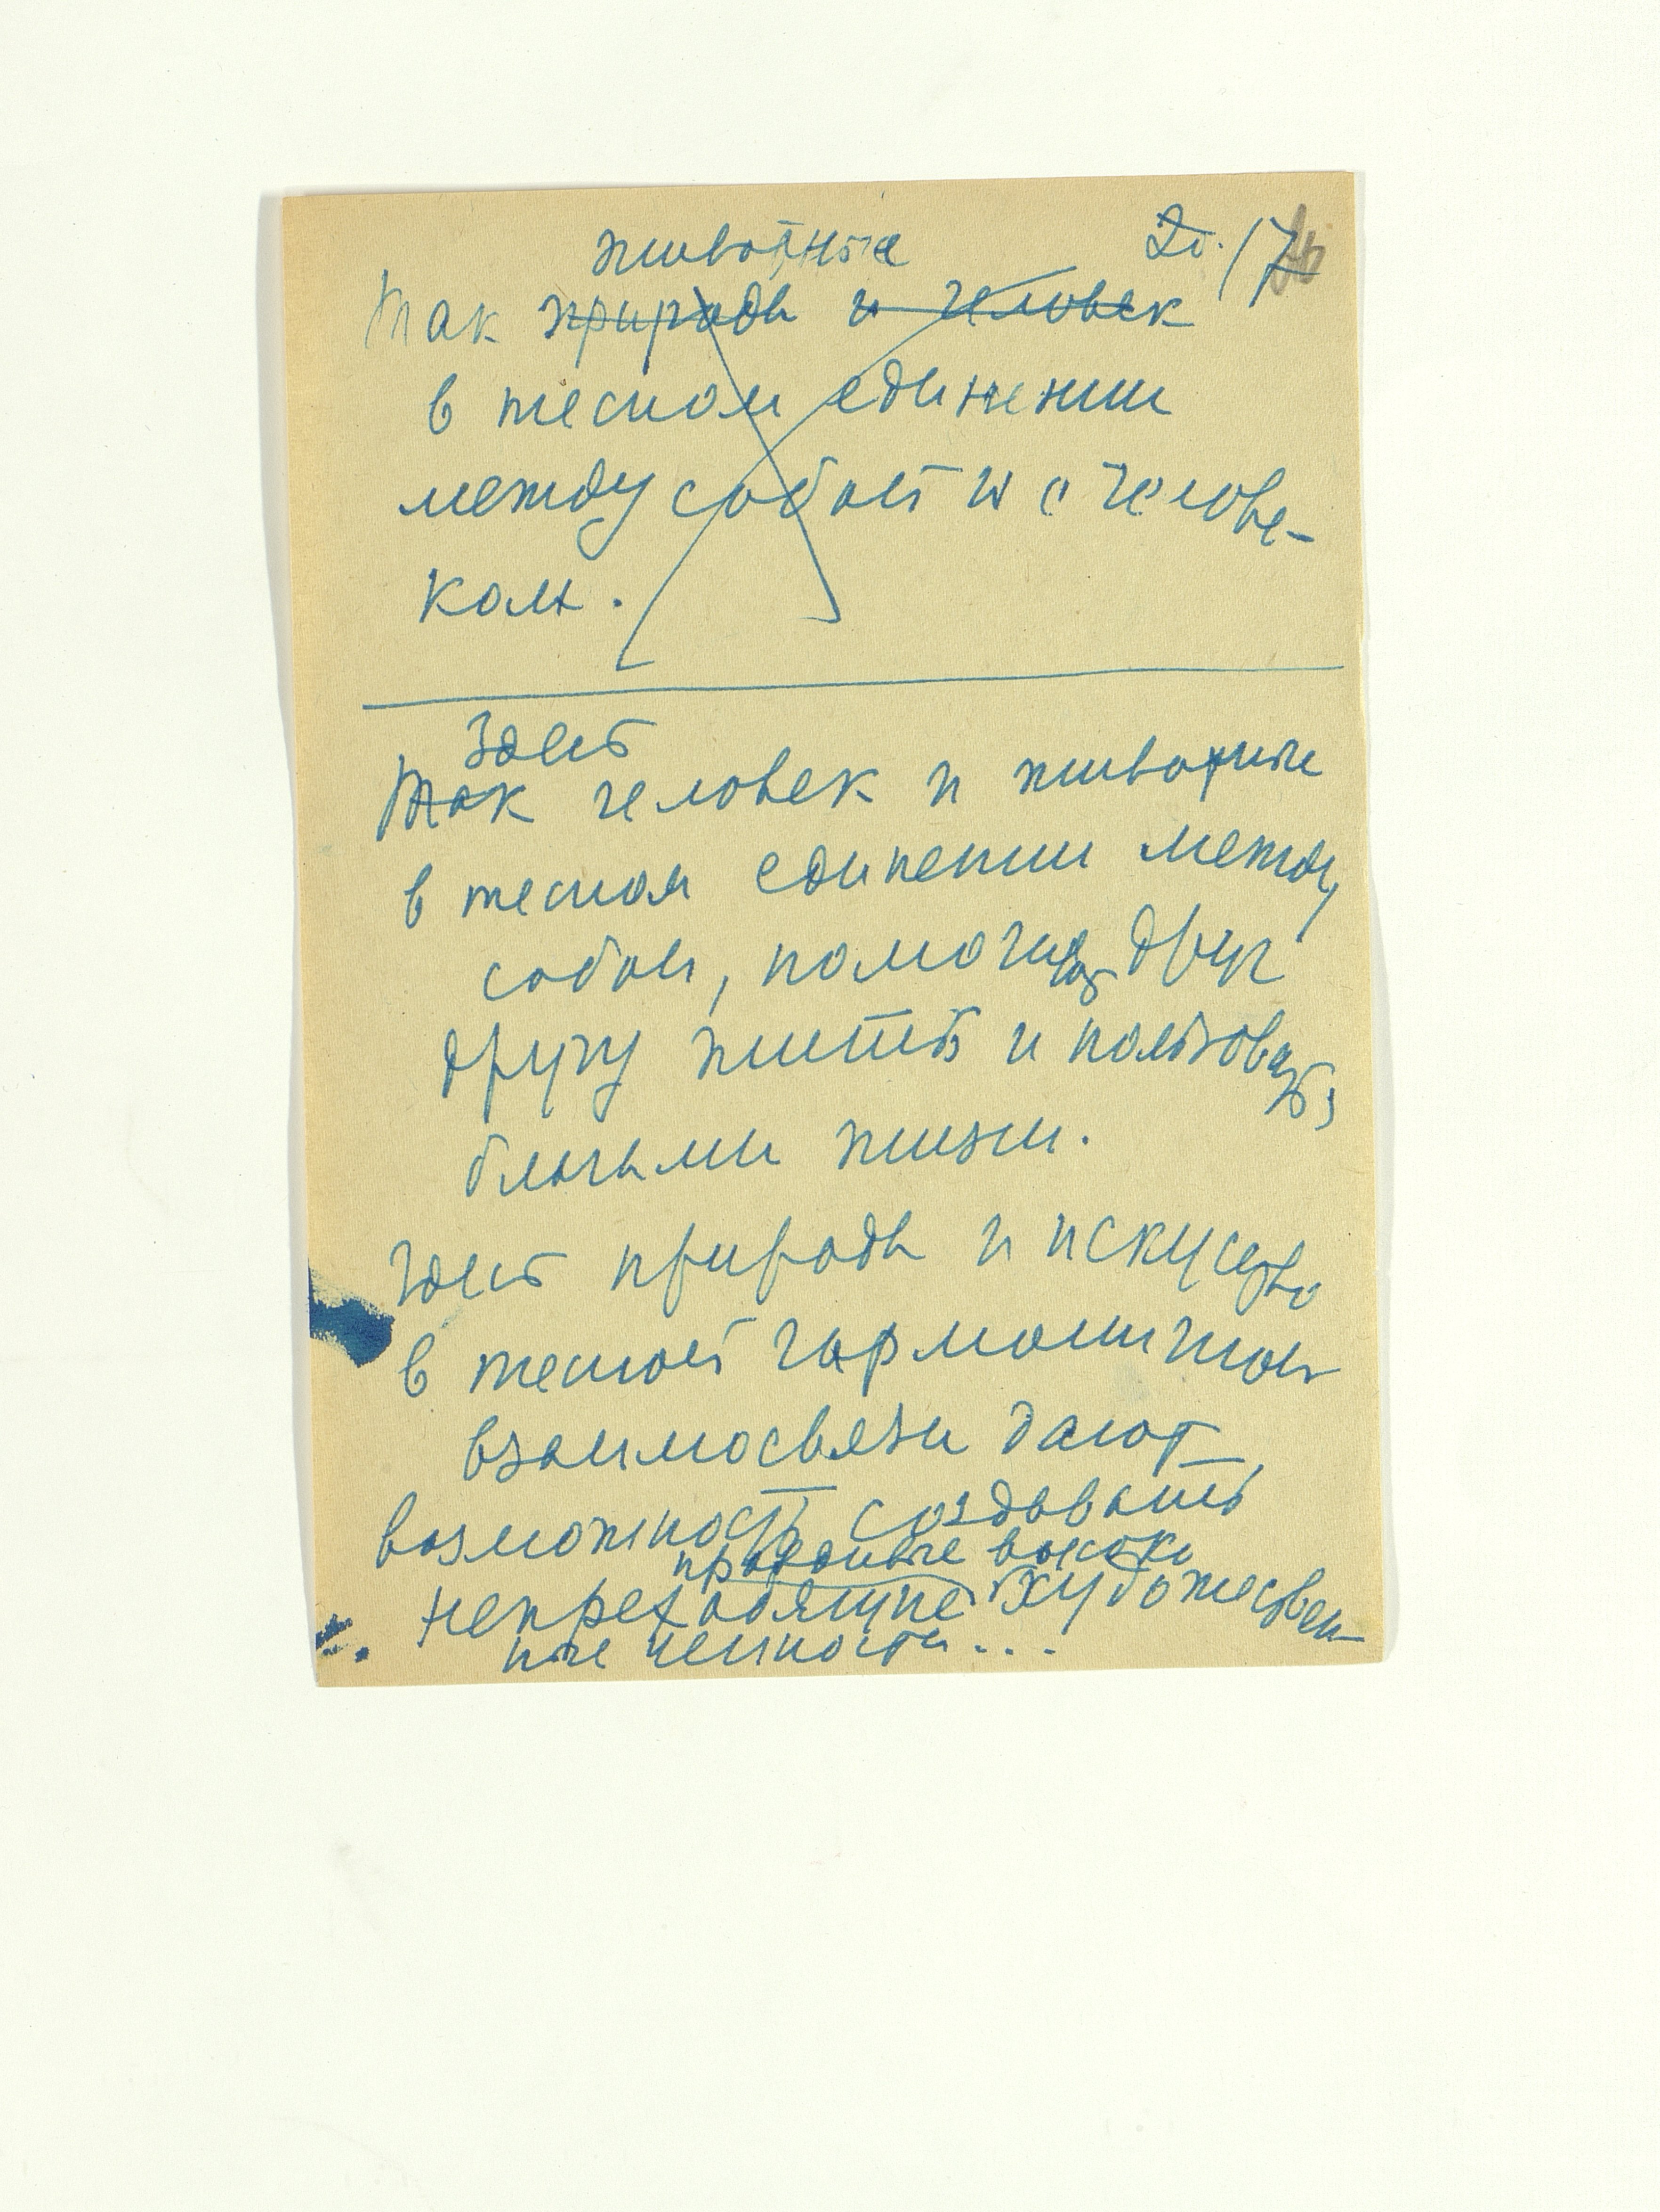 животные 20. 17
Так природа и человек
в тесном единении
между собой и с челове-
ком.
Здесь
Так человек и животные
в тесном единении между
собой, помогая друг
другу жить и пользоваться
благами жизни.
Здесь природа и искусство
в тесной гармоничной
взаимосвязи дают
возможность создавать
высоко
непреходящие художествен-
ные ценности...